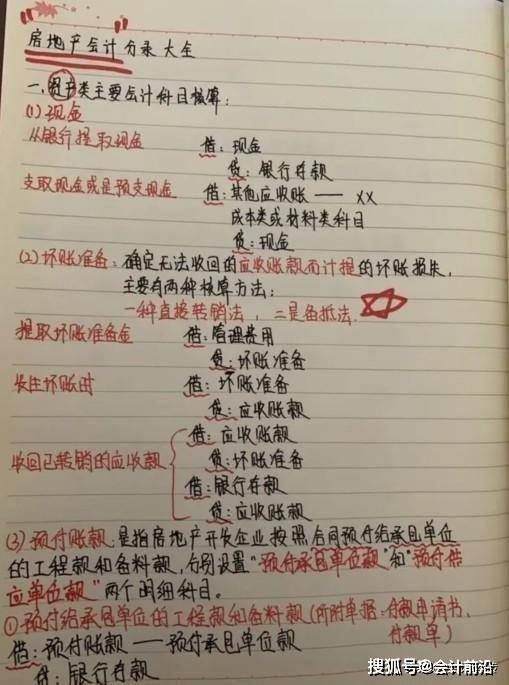 房地产会计分录大全
一、资产类主要会计科目核算：
(1)现金
从银行提取现金 借：现金
贷：银行存款
支取现金或是预支现金 借：其他应收账——XX
成本类或材料类科目
贷：现金
(2)坏账准备：确定无法收回的应收账款而计提的坏账损失，
主要有两种核算方法：
一种直接转销法，二是备抵法.
提取坏账准备金 借：管理费用
贷：坏账准备
发生坏账时 借：坏账准备
贷：应收账款
借：应收账款
收回已转销的应收款 贷：坏账准备
借：银行存款
贷：应收账款
(3)预付账款：是指房地产开发企业按照合同预付给承包单位
的工程款和备料款，分别设置“预付承包单位款”和“预付供
应单位款”两个明细科目。
①预付给承包单位的工程款和备料款(所附单据：付款申请书、
付款单)
借：预付账款——预付承包单位款
贷：银行存款
搜狐号@会计前沿